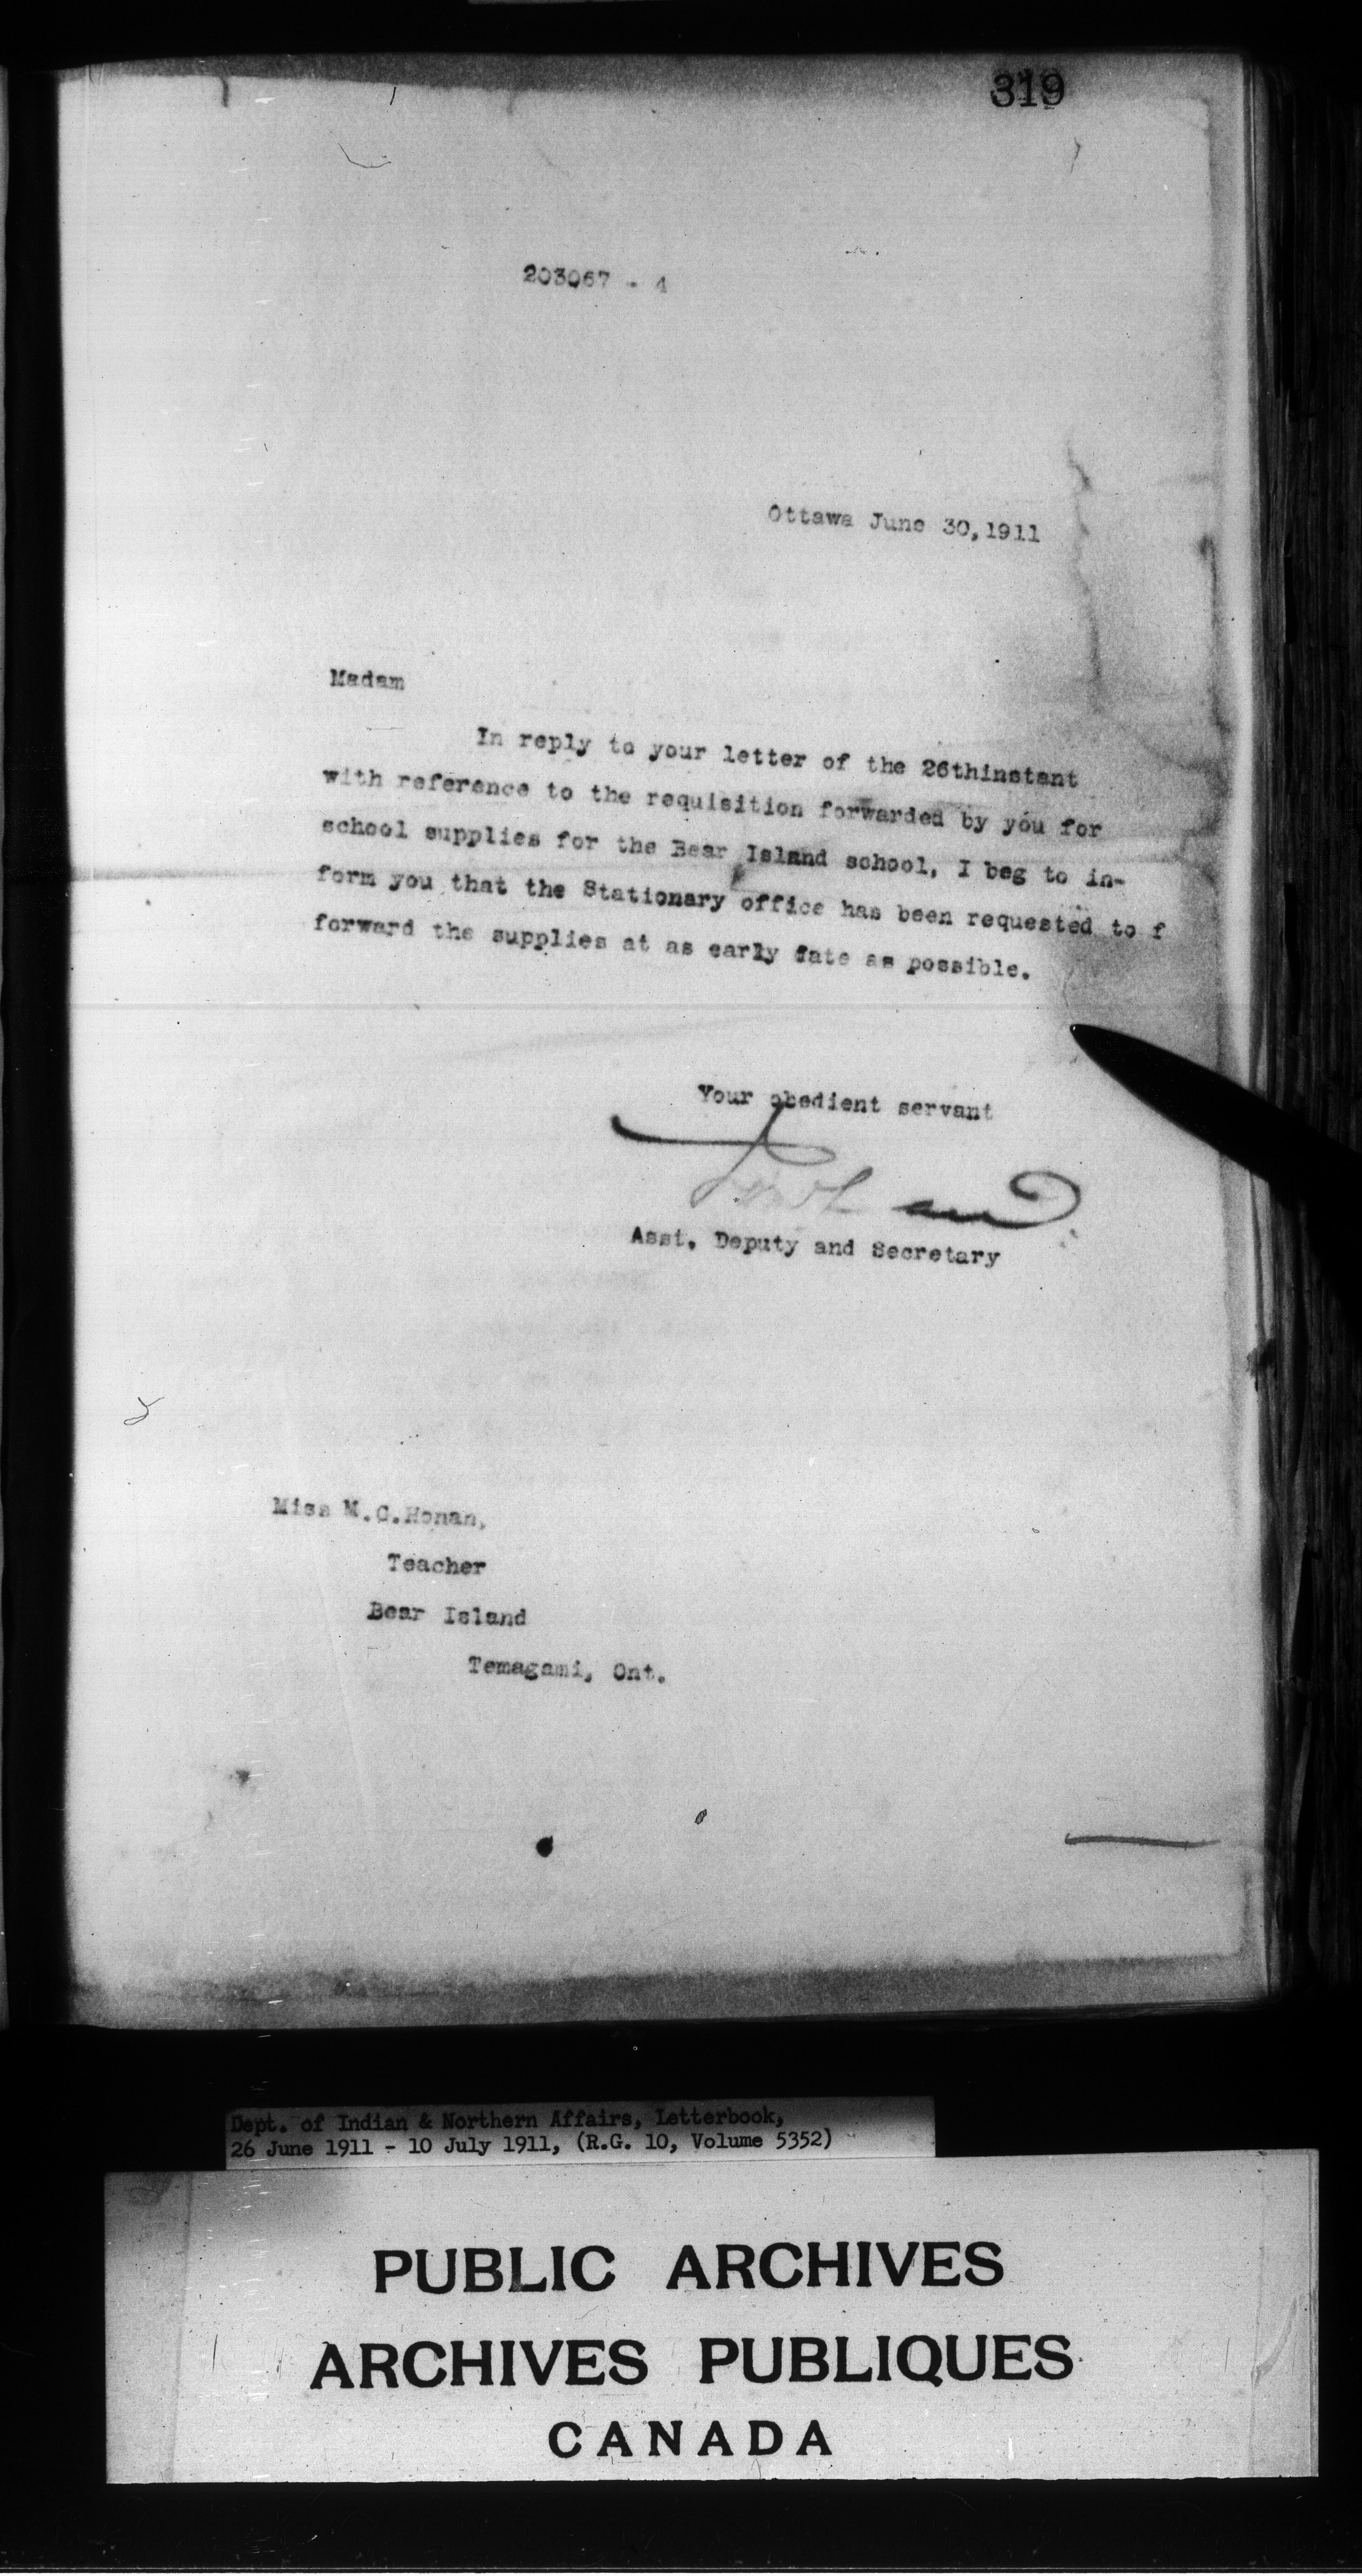 319
203067 - 4
Ottawa June 30,1911
Madam
In reply to your letter of the 26thinstant
with reference to the requisition forwarded by you for
school supplies for the Bear Island school, I beg to in-
form you that the Stationary office has been requested to f
forward the supplies at as early date as possible.
Your obedient servant
Asst. Deputy and Secretary
Miss M.C.Honan,
Teacher
Bear Island
Temagami, Ont.
Dept. of Indian & Northern Affairs, Letterbook,
26 June 1911 - 10 July 1911, (R.G. 10, Volume 5352)
PUBLIC ARCHIVES
ARCHIVES PUBLIQUES
CANADA